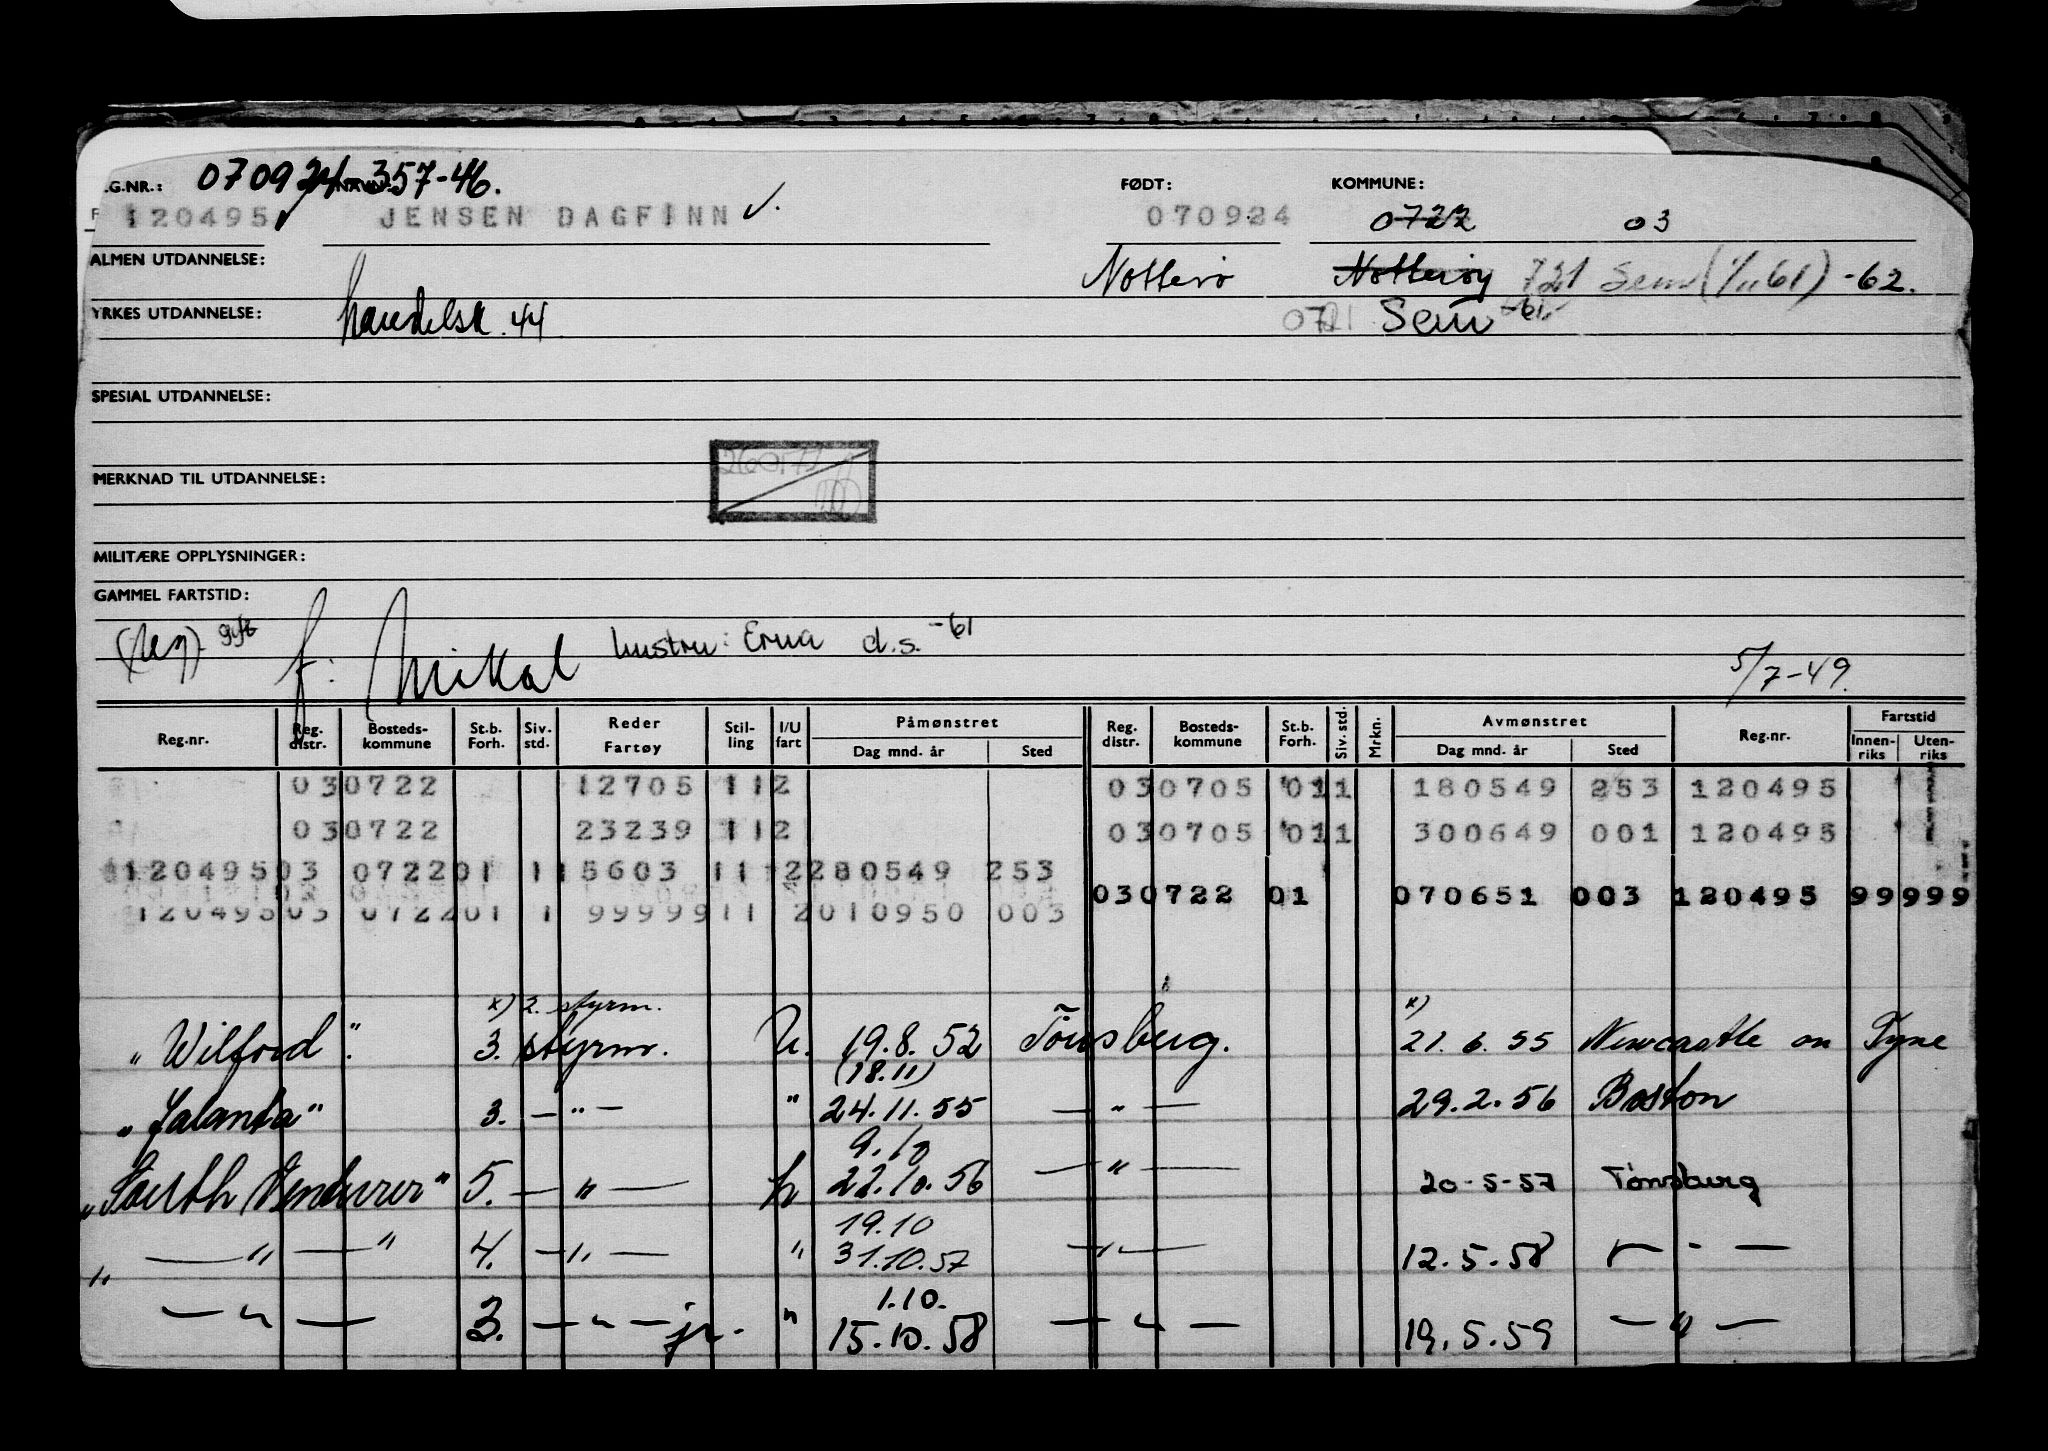 .G.NR.: 070924-357-46. FØDT: KOMMUNE:
120495 JENSEN DAGFINN √. 070924 0722 03
ALMEN UTDANNELSE: Notterø Notterøy 721 Sem (1/11 61) -62.
YRKES UTDANNELSE: handelssk. 44 0721 Sem -61
SPESIAL UTDANNELSE:
MERKNAD TIL UTDANNELSE:
MILITÆRE OPPLYSNINGER:
GAMMEL FARTSTID:
gift f: Mikal hustru: Erna d.s. -61
5/7-49.
Reg.nr. Reg. distr. Bosteds-kommune St.b. Forh. Siv. std. Reder Fartøy Stil-ling I/U fart Påmønstret Dag mnd. år Sted Reg. distr. Bosteds-kommune St.b. Forh. Siv. std. Mrkn. Avmønstret Dag mnd. år Sted Reg.nr. Fartstid Innen-riks Uten-riks
030722 12705 112 030705 011 180549 253 120495
030722 23239 112 030705 011 300649 001 120495
12049503 072201 115603 11 2280549 253
030722 01 070651 003 120495 99999
12049503 072201 1 9999911 2010950 003
x) 2. styrm. x)
"Wilford". 3. styrm. U. 19.8.52 Tönsberg. 21.6.55 Newcastle on Tyne
(18.11)
"Jalanta" 3. — " — " 24.11.55 — " — 29.2.56 Boston
9.10
"South Venturer" 5. — " — h 22.10.56 — " — 20-5-57 Tønsberg
19.10
" — " — " 4. — " — " 31.10.57 — " — 12.5.58 — " —
1.10.
— " — 3. — " — jr. " 15.10.58 — " — 19.5.59 — " —